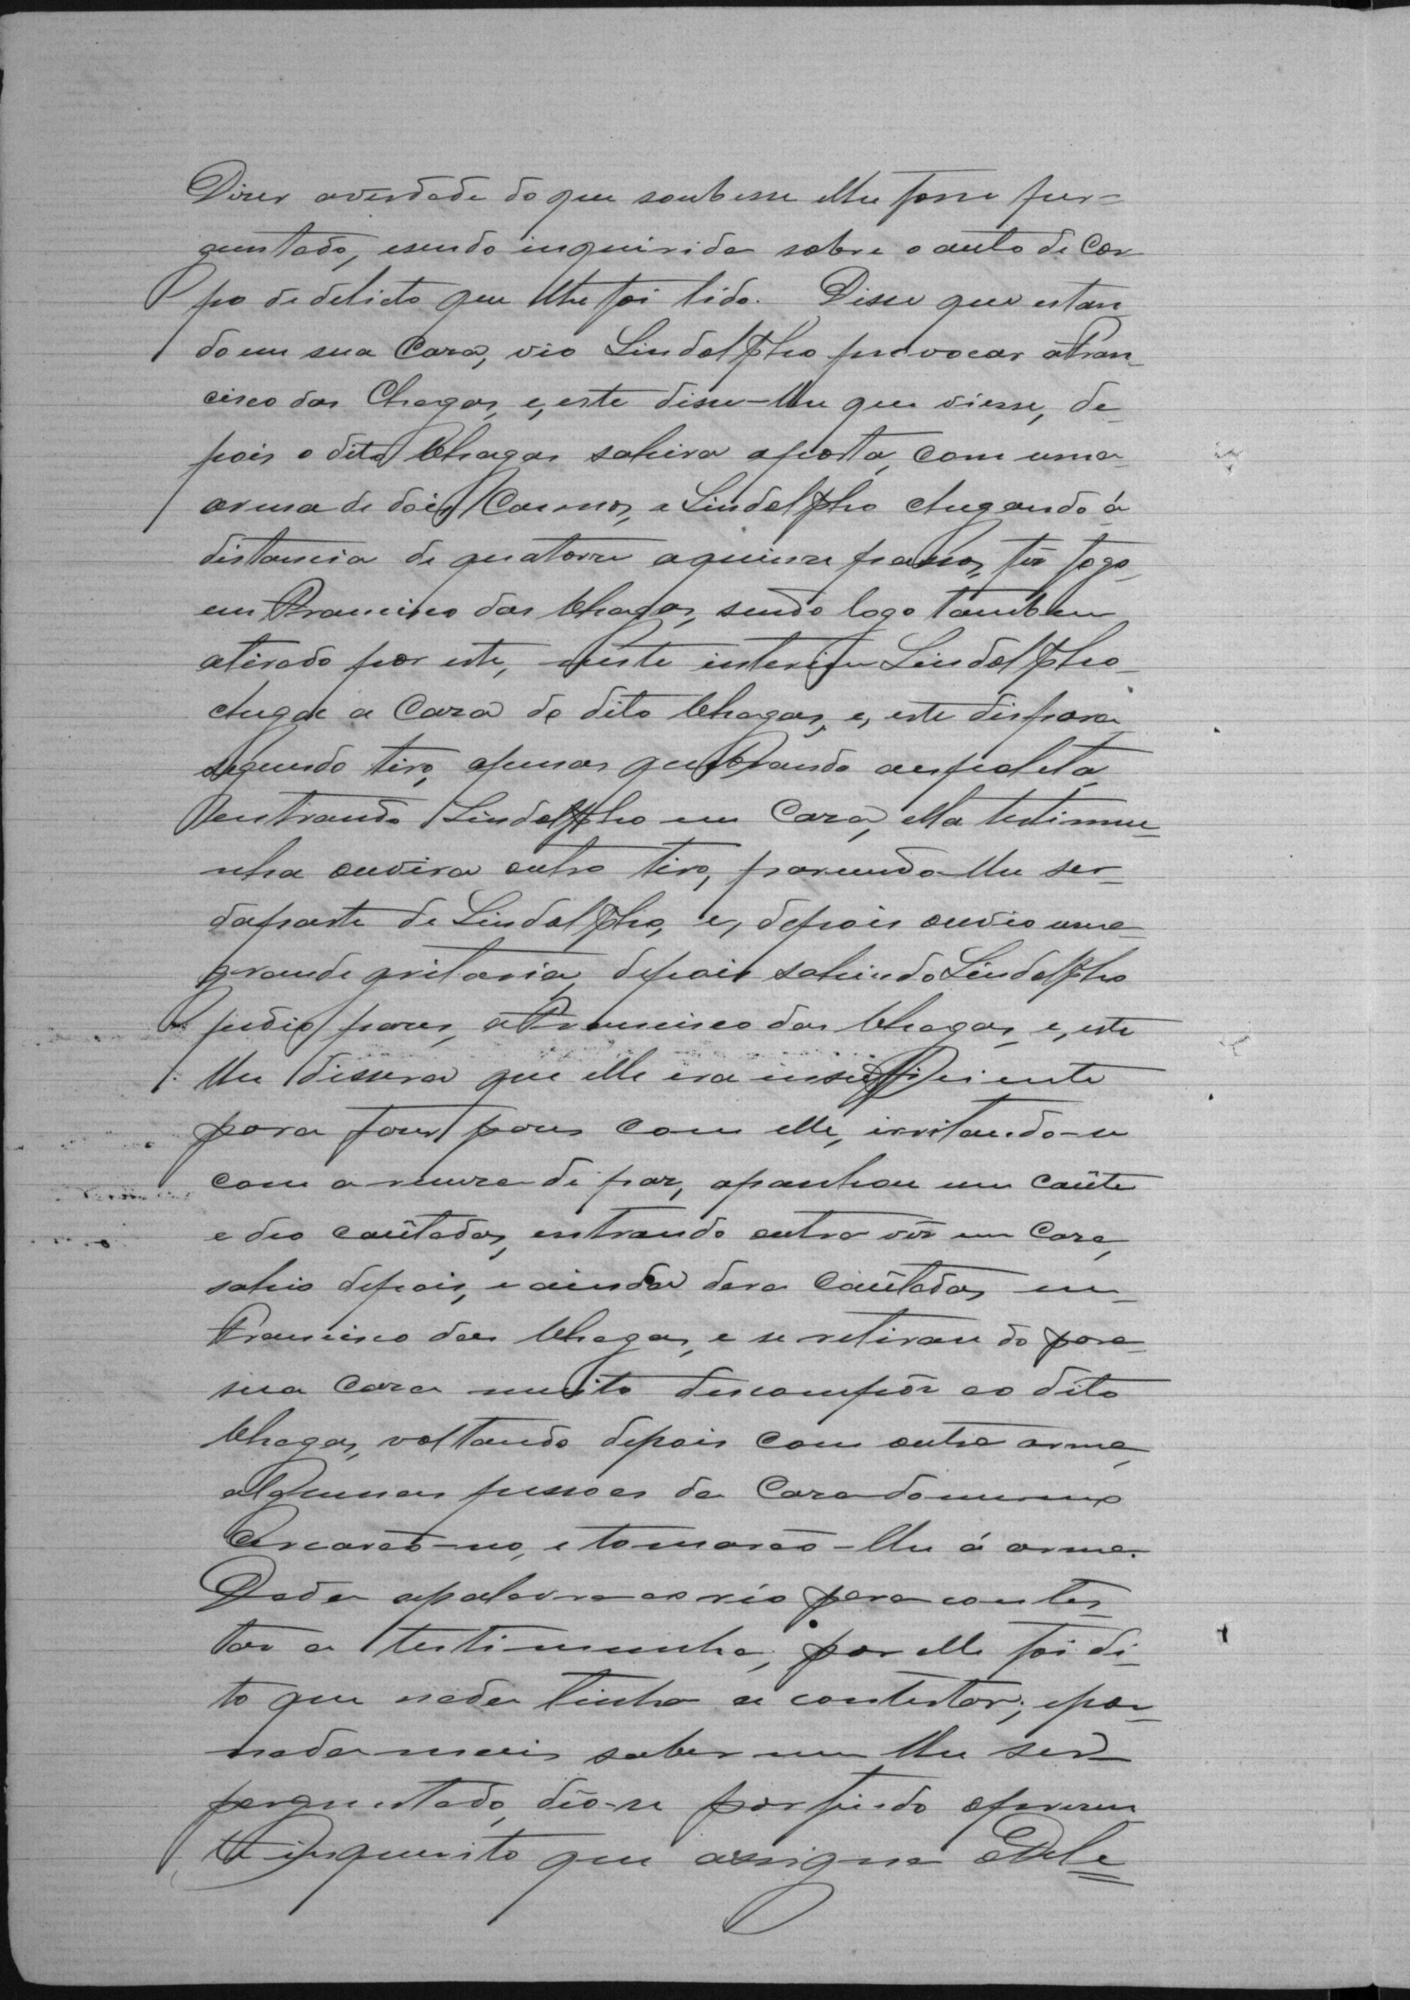 Dizer averdade do que soubesse elhe fosse per=
guntado, esendo inquirida sobre o auto de Cor
po de delicto que lhe foi lido. Disse que estan
do em sua Caza, vio Lindolpho provocar áFran
cisco das Chagas, e, este disse-lhe que viesse, de
pois o dito Chagas sahira aporta, com uma
arma de dois Cannos, e Lindolpho chegando á
distancia de quatorze aquinze passos, féz fogo
em Francisco das Chagas, sendo logo tambem
atirado por este, neste interim Lindolpho
chega a Caza do dito Chagas, e, este dispara
segundo tiro, apenas quebrando aespoleta,
entrando Lindolpho em Caza, ella testimu=
nha ouvira outro tiro, parecendo-lhe ser
daparte de Lindolpho, e, depois ouvio uma
grande gritaria, depois sahindo Lindolpho
pedio pazes, áFrancisco das Chagas, e, este
lhe dissera que elle era insufficiente
para fazer pazes com elle, irritando-se
com a de paz, apanhou um caûte
e deo caûtadas, entrando outra vêz em Caza,
sahio depois, e ainda dera Caûtadas em
Francisco das Chagas, e se retirando para
sua Caza muito descompôz ao dito
Chagas, voltando depois com outra arma,
algumas pessoas da Caza domesmo
Cercarão-no, e tomarão-lhe á arma.
Dada apalavra ao réo para contes
tar a testimunha, por elle foi di
to que nada tinha a contestar; epor
nada mais saber nem lhe ser
perguntado, deo-se por findo opresen
te inquerito que assigna oDele=